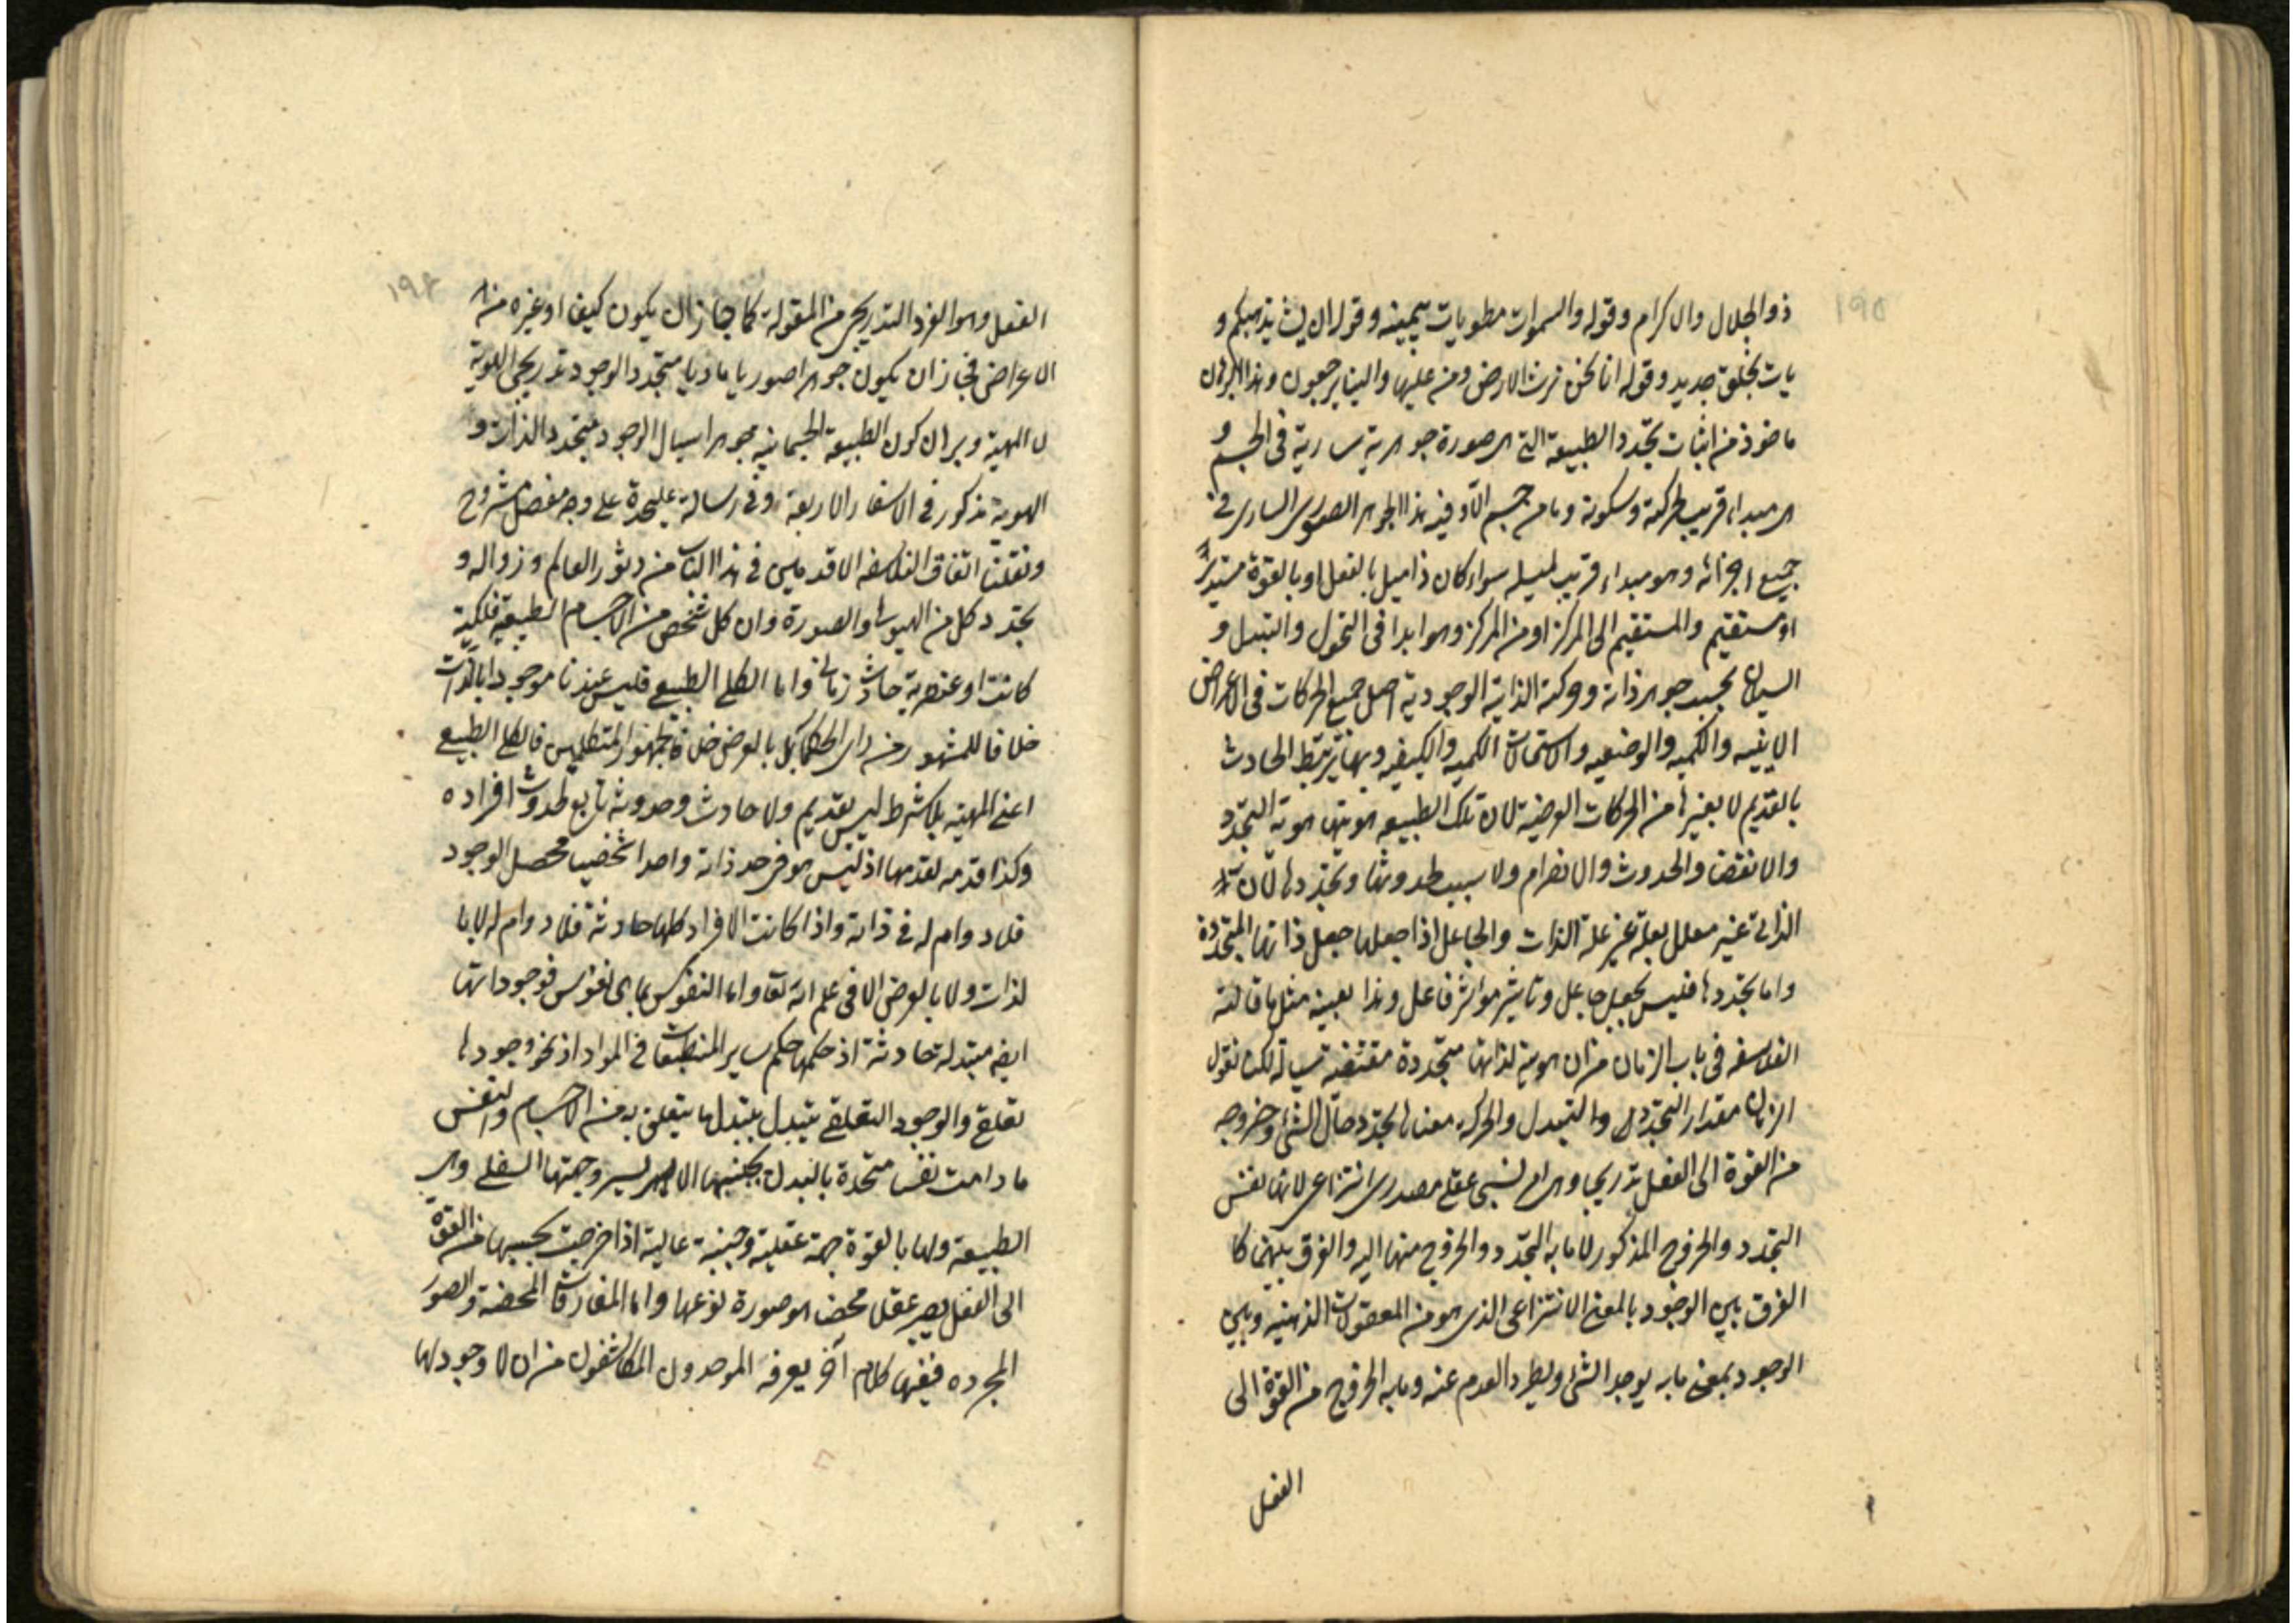 ١٩٥
ذو الجلال والاكرام وقوله والسموات مطويات بيمينه وقوله ان يشا يذهبكم و
يات بخلق جديد وقوله انا نحن نرث الارض ومن عليها والينا يرجعون وهذا البرهان
ماخوذ من اثبات تجدد الطبيعة التي هى صورة جوهرية سارية فى الجسم و
هى مبداء قريب لحركته وسكونه وما من جسم الا وفيه هذا الجوهر الصورى السارى فى
جميع اجزائه وهو مبداء قريب لميله سواء كان ذا ميل بالفعل او بالقوة مستديرا
او مستقيم والمستقيم الى المركز او من المركز وهو ابدا فى التحول والتبدل و
السيلان بحسب جوهر ذاته وحركته الذاتية الوجودية اصل جميع الحركات فى الاعراض
الاينيه والكميه والوضعيه والاستحالات الكميه والكيفيه وبها يرتبط الحادث
بالقديم لا بغيرها من الحركات العرضية لان تلك الطبيعه هويتها هوية التجدد
والانقضا والحدوث والانصرام ولا سبب لحدوثها وتجددها لان
الذاتى غير معلل بعلة غير علة الذات والجاعل اذا جعلها جعل ذاتها المتجددة
واما تجددها فليس بجعل جاعل وتاثير موثر فاعل وهذا بعينه مثل ما قالته
الفلاسفه فى باب الزمان من ان هويته لذاتها متجددة مقتضيه سيالة لكن نقول
الزمان مقدار التجدد والتبدل والحركه معناها تجدد حال الشئ وخروجه
من القوة الى الفعل تدريجا وهى امر نسبى عقلى مصدرى انتزاعى لانها نفس
التجدد والخروج المذكور لا ما به التجدد والخروج منها اليه والفرق بينهما كا
الفرق بين الوجود بالمعنى الانتزاعى الذى هو من المعقولات الذهنيه وبين
الوجود بمعنى ما به يوجد الشئ ويطرد العدم عنه وما به الخروج من القوة الى
الفعل
١٩٤
الفعل وهو الفرد التدريجى من المقولة كما جاز ان يكون كيفا او غيره من
الاعراض فجاز ان يكون جوهرا صوريا ماديا متجدد الوجود تدريجى الهوية
لا المهية وبرهان كون الطبيعة الجسمانيه جوهرا سيال الوجود متجدد الذات و
الهوية مذكور فى الاسفار الاربعة وفى رسالة عليحدة على وجه مفصل مشروح
ونقلنا اتفاق الفلاسفه الاقدمين فى هذا الباب من دثور العالم وزواله و
تجدد كل من الهيولى والصورة وان كل شخص من الاجسام الطبيعيه فلكية
كانت او عنصرية حادث زمانى واما الكلى الطبيعى فليس عندنا موجودا بالذات
خلافا للمشهور من راى الحكما بل بالعرض خلافا لجمهور المتكلمين فالكلى الطبيعى
اعنى المهيه بلا شرط ليس بقديم ولا حادث وحدوثه تابع لحدوث افراده
وكذا قدمه لقدمها اذ ليس هو فى حد ذاته واحدا شخصيا محصل الوجود
فلا دوام له فى ذاته واذا كانت الافراد كلها حادثة فلا دوام له لا با
لذات ولا بالعرض الا فى علم الله تعا واما النفوس بما هى نفوس فوجوداتها
ايضه مبتدلة حادثة اذ حكمها حكم ساير المنطبعات فى المواد اذ نحو وجودها
تعلقى والوجود التعلقى يتبدل بتبدل ما يتعلق به من الاجسام والنفس
ما دامت نفسا متحدة بالبدل بجنبها الايسر وجهتها السفلى وهى
الطبيعة ولها بالقوة جهة عقلية وجنبة عالية اذا خرجت بحسبها من القوة
الى الفعل يصير عقلا محضا هو صورة نوعها واما المفارقات المحضة والصور
المجرده ففيها كلام آخر يعرفه الموحدون المكاشفون من ان لا وجود لها